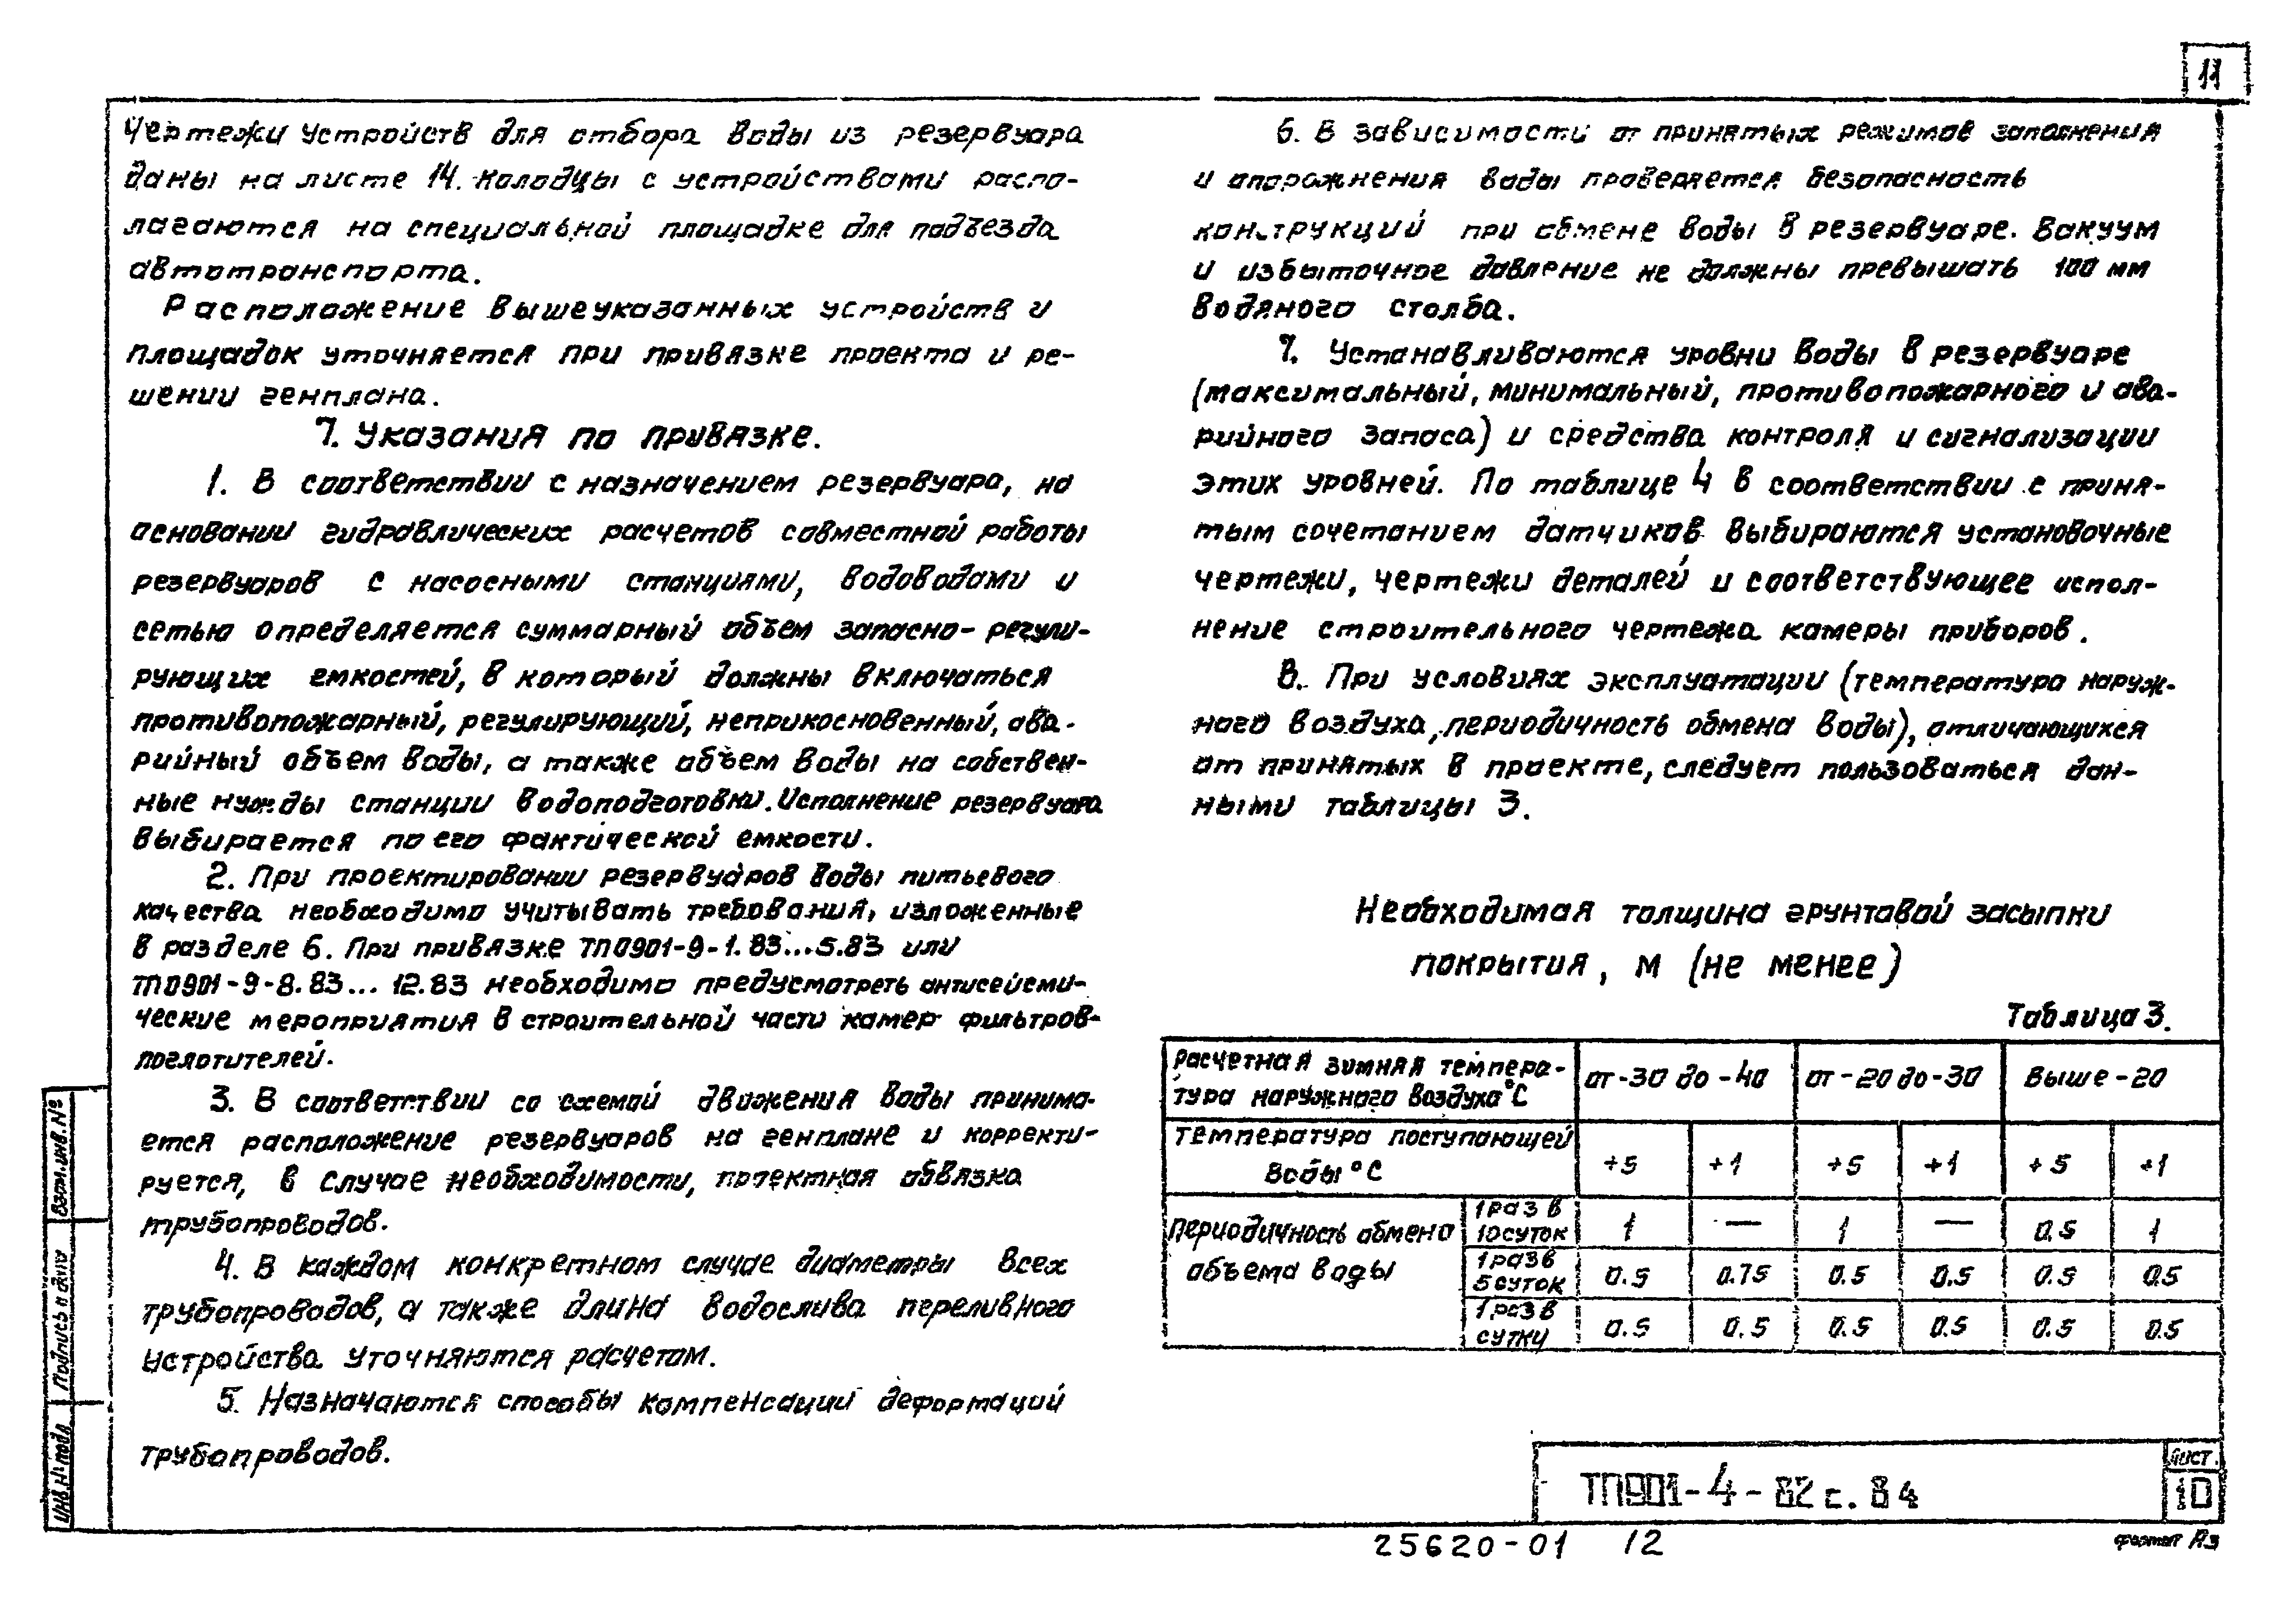 11
Чертежи устройств для отбора воды из резервуара
даны на листе 14. Колодцы с устройствами распо-
лагаются на специальной площадке для подъезда
автотранспорта.
Расположение вышеуказанных устройств и
площадок уточняется при привязке проекта и ре-
шении генплана.
7. Указания по привязке.
1. В соответствии с назначением резервуара, на
основании гидравлических расчетов совместной работы
резервуаров с насосными станциями, водоводами и
сетью определяется суммарный объем запасно-регули-
рующих емкостей, в который должны включаться
противопожарный, регулирующий, неприкосновенный, ава-
рийный объем воды, а также объем воды на собствен-
ные нужды станции водоподготовки. Исполнение резервуара
выбирается по его фактической емкости.
2. При проектировании резервуаров воды питьевого
качества необходимо учитывать требования, изложенные
в разделе 6. При привязке ТП0901-9-1.83...5.83 или
ТП0901-9-8.83... 12.83 необходимо предусмотреть антисейсми-
ческие мероприятия в строительной части камер фильтров-
поглотителей.
3. В соответствии со схемой движения воды принима-
ется расположение резервуаров на генплане и корректи-
руется, в случае необходимости, проектная обвязка
трубопроводов.
4. В каждом конкретном случае диаметры всех
трубопроводов, а также длина водослива переливного
устройства уточняются расчетом.
5. Назначаются способы компенсации деформаций
трубопроводов.
6. В зависимости от принятых режимов заполнения
и опорожнения воды проверяется безопасность
конструкций при обмене воды в резервуаре. Вакуум
и избыточное давление не должны превышать 100 мм
водяного столба.
7. Устанавливаются уровни воды в резервуаре
(максимальный, минимальный, противопожарного и ава-
рийного запаса) и средства контроля и сигнализации
этих уровней. По таблице 4 в соответствии с приня-
тым сочетанием датчиков выбираются установочные
чертежи, чертежи деталей и соответствующее испол-
нение строительного чертежа камеры приборов.
8. При условиях эксплуатации (температура наруж-
ного воздуха, периодичность обмена воды), отличающихся
от принятых в проекте, следует пользоваться дан-
ными таблицы 3.
Необходимая толщина грунтовой засыпки
покрытия, м (не менее)
Таблица 3.
Расчетная зимняя темпера-
тура наружного воздуха °С
от -30 до -40 от -20 до -30 выше -20
Температура поступающей
воды °С
+5 +1 +5 +1 +5 +1
Периодичность обмена
объема воды
1 раз в
10 суток 1 — 1 — 0.5 1
1 раз в
5 суток 0.5 0.75 0.5 0.5 0.5 0.5
1 раз в
сутки 0.5 0.5 0.5 0.5 0.5 0.5
Взам.инв.№
Подпись и дата
Инв.№ подл
ТП901-4-82с.84
Лист.
10
25620-01 12
формат А3